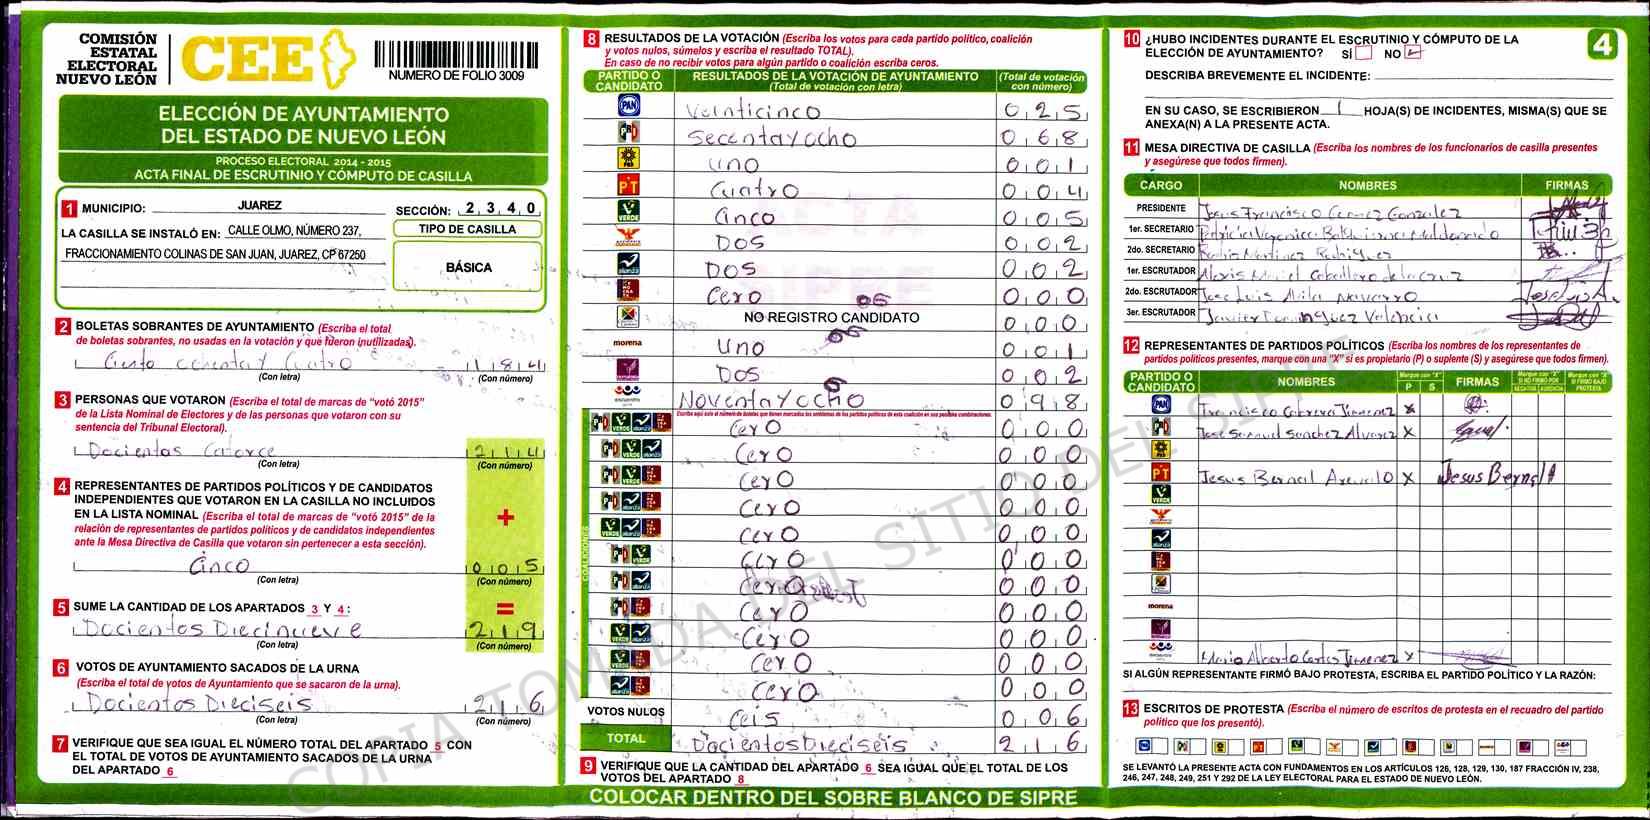 COMISIÓN
ESTATAL
ELECTORAL
NUEVO LEÓN
CEE
NUMERO DE FOLIO 3009
ELECCIÓN DE AYUNTAMIENTO
DEL ESTADO DE NUEVO LEÓN
PROCESO ELECTORAL 2014 - 2015
ACTA FINAL DE ESCRUTINIO Y CÓMPUTO DE CASILLA
1 MUNICIPIO: JUAREZ
SECCIÓN: 2,3,4,0
LA CASILLA SE INSTALÓ EN: CALLE OLMO, NÚMERO 237,
FRACCIONAMIENTO COLINAS DE SAN JUAN, JUAREZ, CP 67250
TIPO DE CASILLA
BÁSICA
2 BOLETAS SOBRANTES DE AYUNTAMIENTO (Escriba el total
de boletas sobrantes, no usadas en la votación y que fueron inutilizadas).
Ciento ochenta y Cuatro 184
(Con letra) (Con número)
3 PERSONAS QUE VOTARON (Escriba el total de marcas de “votó 2015”
de la Lista Nominal de Electores y de las personas que votaron con su
sentencia del Tribunal Electoral).
Docientos Catorce 214
(Con letra) (Con número)
4 REPRESENTANTES DE PARTIDOS POLÍTICOS Y DE CANDIDATOS
INDEPENDIENTES QUE VOTARON EN LA CASILLA NO INCLUIDOS
EN LA LISTA NOMINAL (Escriba el total de marcas de “votó 2015” de la
relación de representantes de partidos políticos y de candidatos independientes
ante la Mesa Directiva de Casilla que votaron sin pertenecer a esta sección).
+
Cinco 005
(Con letra) (Con número)
5 SUME LA CANTIDAD DE LOS APARTADOS 3 Y 4:
=
Docientos Diecinueve 219
(Con letra) (Con número)
6 VOTOS DE AYUNTAMIENTO SACADOS DE LA URNA
(Escriba el total de votos de Ayuntamiento que se sacaron de la urna).
Docientos Dieciseis 216
(Con letra) (Con número)
7 VERIFIQUE QUE SEA IGUAL EL NÚMERO TOTAL DEL APARTADO 5 CON
EL TOTAL DE VOTOS DE AYUNTAMIENTO SACADOS DE LA URNA
DEL APARTADO 6
8 RESULTADOS DE LA VOTACIÓN (Escriba los votos para cada partido político, coalición
y votos nulos, súmelos y escriba el resultado TOTAL).
En caso de no recibir votos para algún partido o coalición escriba ceros.
PARTIDO O CANDIDATO
RESULTADOS DE LA VOTACIÓN DE AYUNTAMIENTO
(Total de votación con letra)
(Total de votación con número)
PAN Veinticinco 025
PRD Secentayocho 068
PRD uno 001
PT Cuatro 004
VERDE Cinco 005
DOS 002
alianza DOS 002
Cero 000
NO REGISTRO CANDIDATO 000
morena uno 001
DOS 002
Noventayocho 098
Escriba aquí solo el número de boletas que tienen marcados los emblemas de los partidos políticos de esta coalición en sus posibles combinaciones.
COALICIONES
cero 000
cero 000
cero 000
cero 000
cero 000
cero 000
cero 000
cero 000
cero 000
cero 000
cero 000
VOTOS NULOS Ceis 006
TOTAL Docientos Dieciseis 216
9 VERIFIQUE QUE LA CANTIDAD DEL APARTADO 6 SEA IGUAL QUE EL TOTAL DE LOS
VOTOS DEL APARTADO 8
COLOCAR DENTRO DEL SOBRE BLANCO DE SIPRE
ACTA
SIPRE
COPIA TOMADA DEL SITIO DEL SIPRE
10 ¿HUBO INCIDENTES DURANTE EL ESCRUTINIO Y CÓMPUTO DE LA
ELECCIÓN DE AYUNTAMIENTO? SÍ NO
4
DESCRIBA BREVEMENTE EL INCIDENTE:
EN SU CASO, SE ESCRIBIERON 1 HOJA(S) DE INCIDENTES, MISMA(S) QUE SE
ANEXA(N) A LA PRESENTE ACTA.
11 MESA DIRECTIVA DE CASILLA (Escriba los nombres de los funcionarios de casilla presentes
y asegúrese que todos firmen).
CARGO NOMBRES FIRMAS
PRESIDENTE Jesus Francisco Gomez Gonzalez
1er. SECRETARIO Maldonado
2do. SECRETARIO Martinez Rodriguez
1er. ESCRUTADOR Alexis Caballero de la Cruz
2do. ESCRUTADOR Jose Luis Avila Navarro Jose Luis A.
3er. ESCRUTADOR Javier Dominguez Valencia
12 REPRESENTANTES DE PARTIDOS POLÍTICOS (Escriba los nombres de los representantes de
partidos políticos presentes, marque con una “X” si es propietario (P) o suplente (S) y asegúrese que todos firmen).
PARTIDO O CANDIDATO NOMBRES Marque con "X" P S FIRMAS Marque con "X" SI NO FIRMÓ POR NEGATIVA AUSENCIA Marque con "X" SI FIRMÓ BAJO PROTESTA
PAN Francisco Cabrera Jimenez X
Jose Samuel Sanchez Alvarez X
PRD
PT Jesus Bernal Arevalo X Jesus Bernal A
VERDE
alianza
morena
Mario Alberto Cortes Jimenez X
SI ALGÚN REPRESENTANTE FIRMÓ BAJO PROTESTA, ESCRIBA EL PARTIDO POLÍTICO Y LA RAZÓN:
13 ESCRITOS DE PROTESTA (Escriba el número de escritos de protesta en el recuadro del partido
político que los presentó).
SE LEVANTÓ LA PRESENTE ACTA CON FUNDAMENTOS EN LOS ARTÍCULOS 126, 128, 129, 130, 187 FRACCIÓN IV, 238,
246, 247, 248, 249, 251 Y 292 DE LA LEY ELECTORAL PARA EL ESTADO DE NUEVO LEÓN.